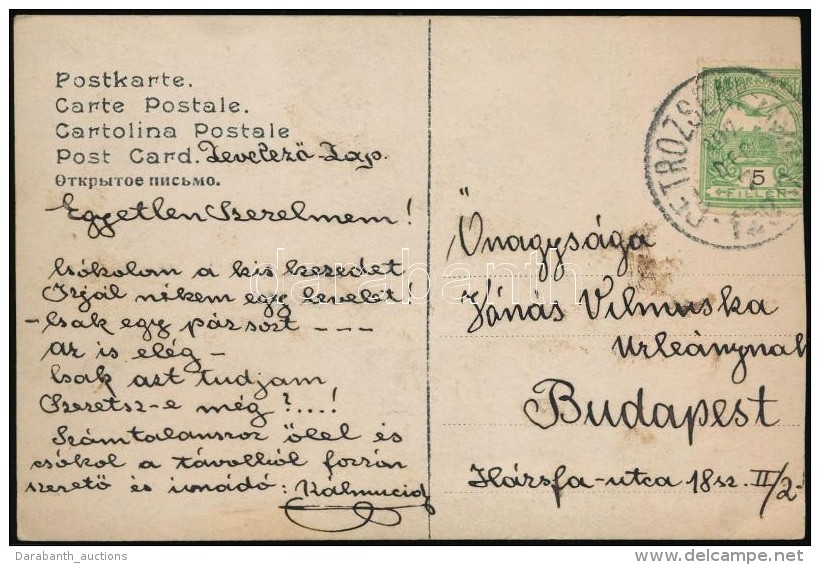 Postkarte.
Carte Postale.
Cartolina Postale
Post Card. Levelező-Lap.
Открытое письмо.
Egyetlen Szerelmem!
Csókolom a kis kezedet
Írjál nékem egy levelet!
- Csak egy pár sort - - -
az is elég -
Csak azt tudjam
Szeretsz-e még?...!
Számtalanszor ölel és
csókol a távolból forrón
szerető és imádó: Kálmucid
Őnagysága
Jónás Vilmuska
Urleánynak
Budapest
Hársfa-utca 18sz. II/2.
PETROZSÉNY
MAGYAR KIR. POSTA
5
FILLÉR
darabanth
Darabanth_auctions
www.delcampe.net